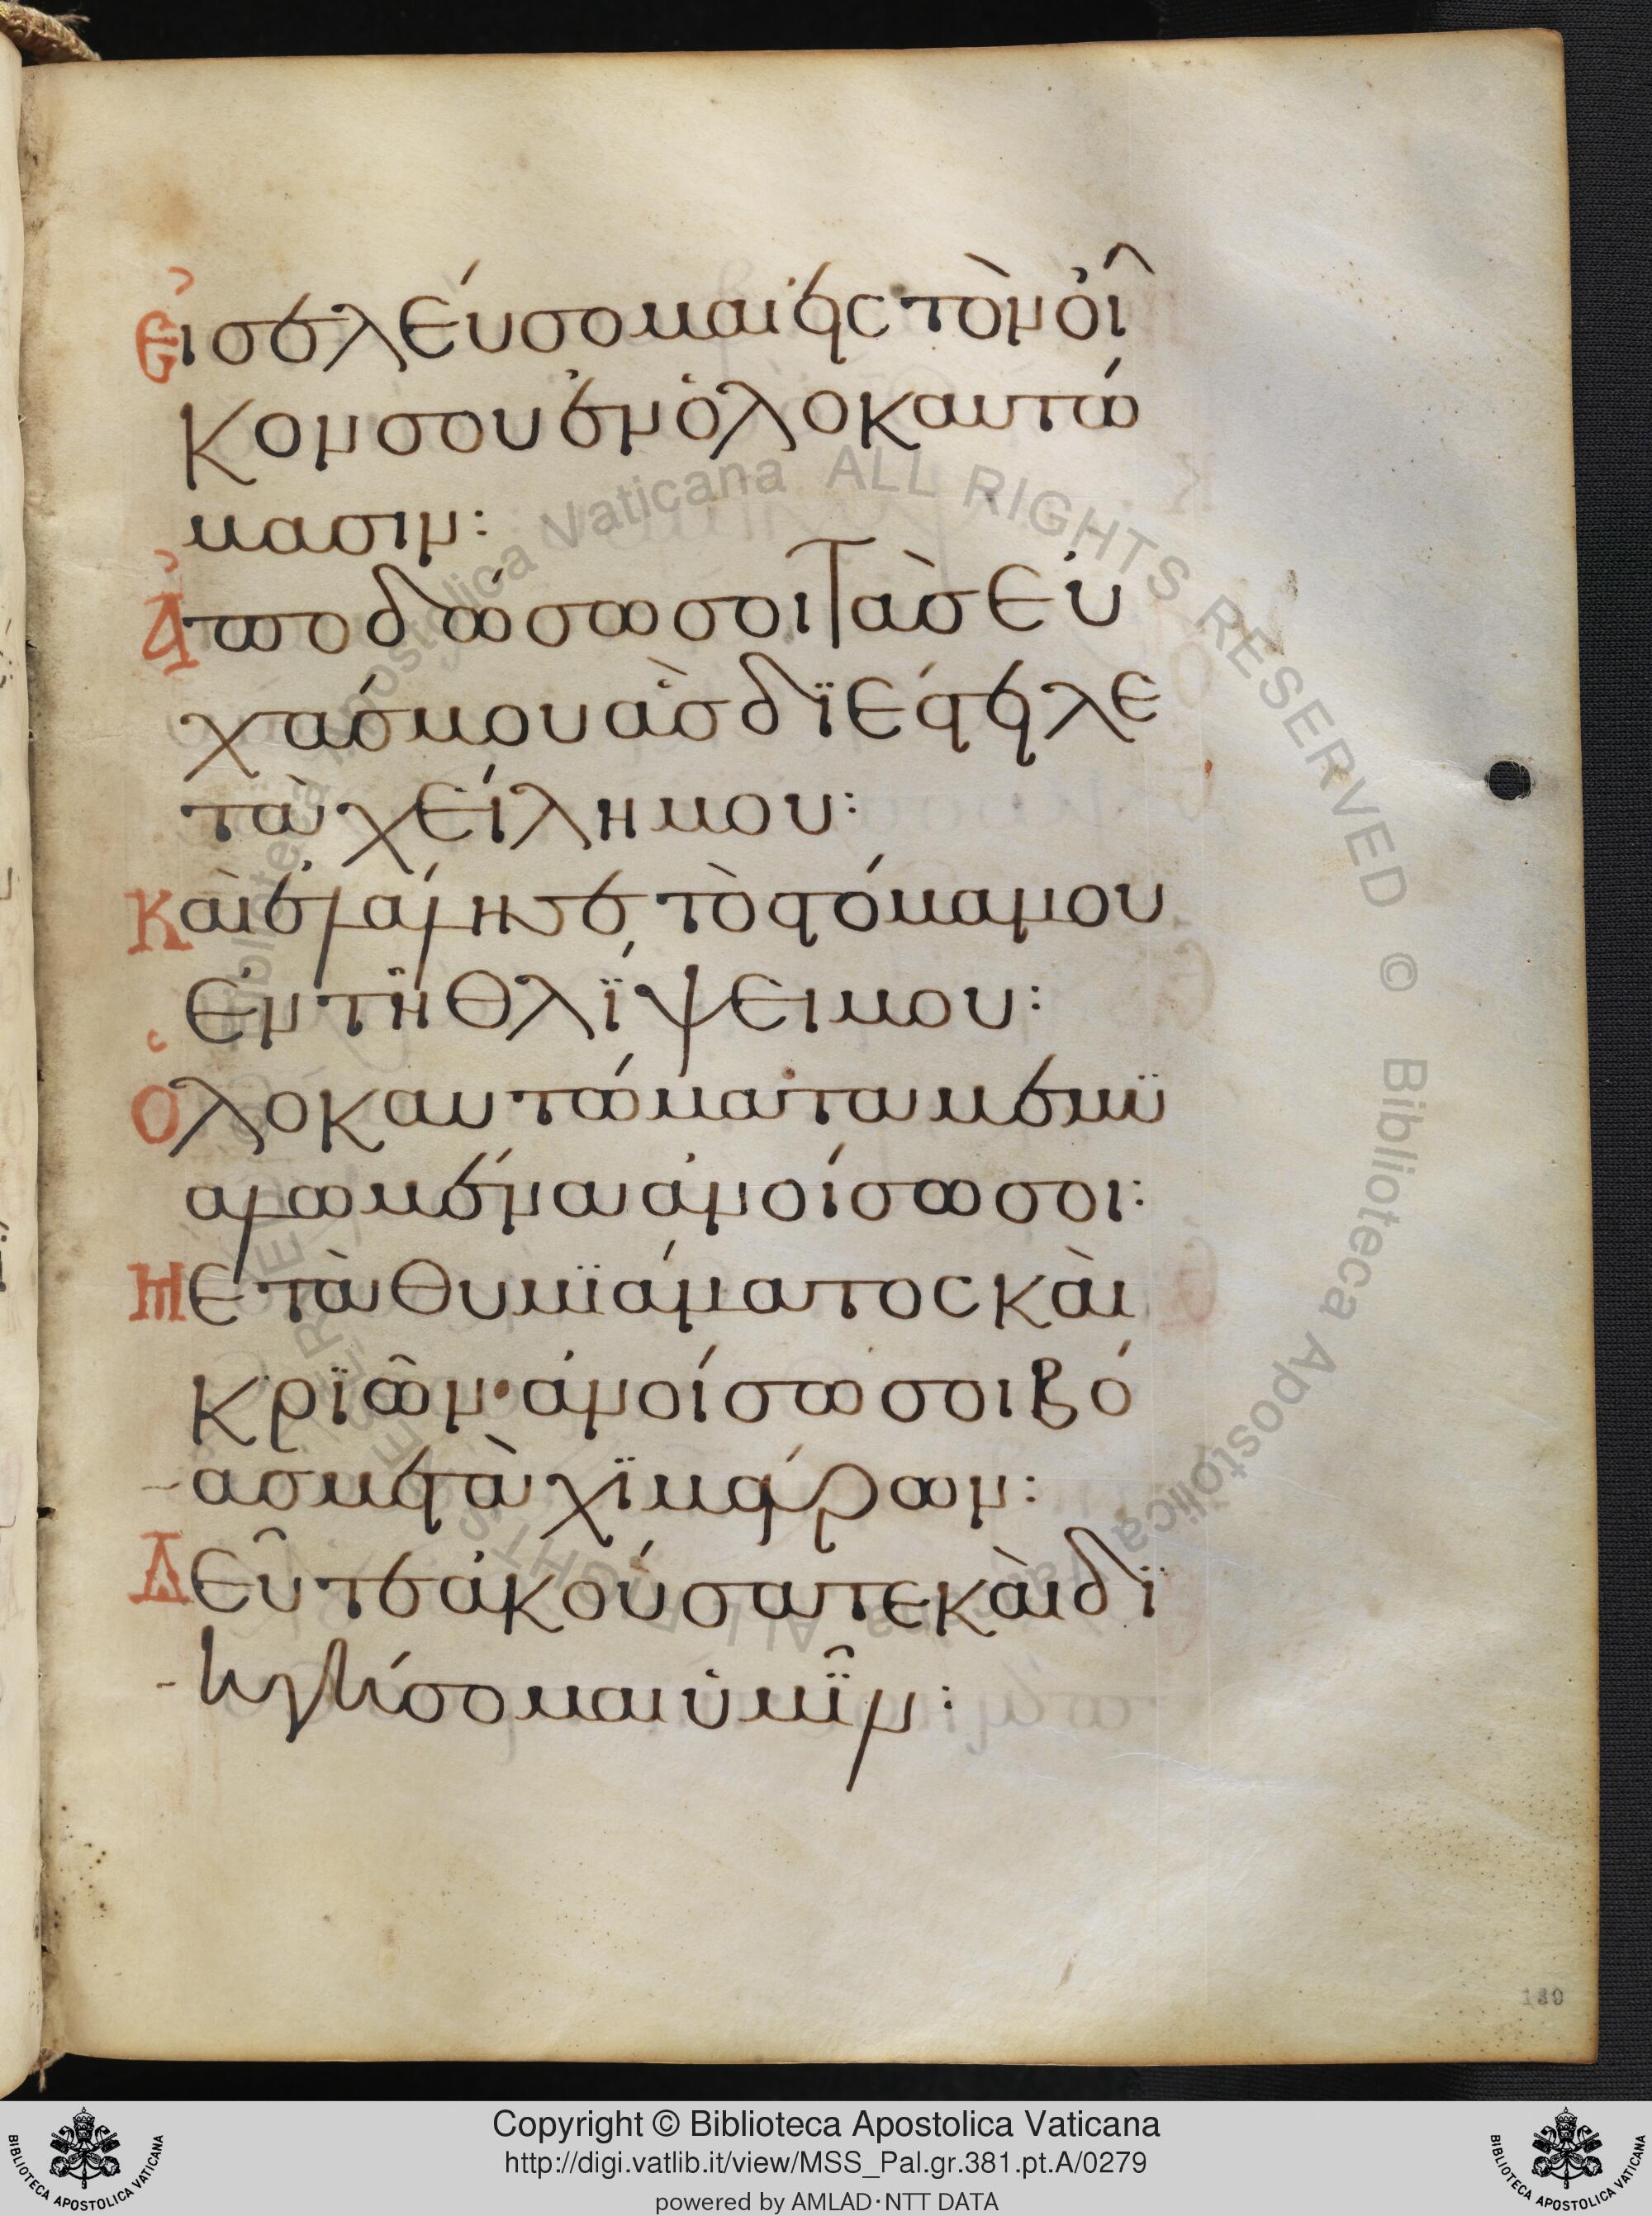 Εἰσελεύσομαι εἰς τὸν οἶ
κον σου ἐν ὁλοκαυτώ
μασιν:
Ἀποδώσω σοι τὰσ εὐ
χάσ μου ἃσ διέστειλε
τὰ χείλη μου:
Καὶ ἐλάλησε τὸ στόμα μου
ἐν τῆ θλίψει μου:
Ὁλοκαυτώματα μεμυ
αλωμένα ἀνοίσω σοι:
Μετὰ θυμϊάματος καὶ
κρϊῶν· ἀνοίσω σοι βό
ασ μετὰ χϊμάρων:
Δεῦτε ἀκούσατε καὶ δϊ
ηγήσομαι ὑμῖν:
130
Copyright © Biblioteca Apostolica Vaticana
http://digi.vatlib.it/view/MSS_Pal.gr.381.pt.A/0279
powered by AMLAD·NTT DATA
BIBLIOTECA APOSTOLICA VATICANA
BIBLIOTECA APOSTOLICA VATICANA
Biblioteca Apostolica Vaticana ALL RIGHTS RESERVED ©